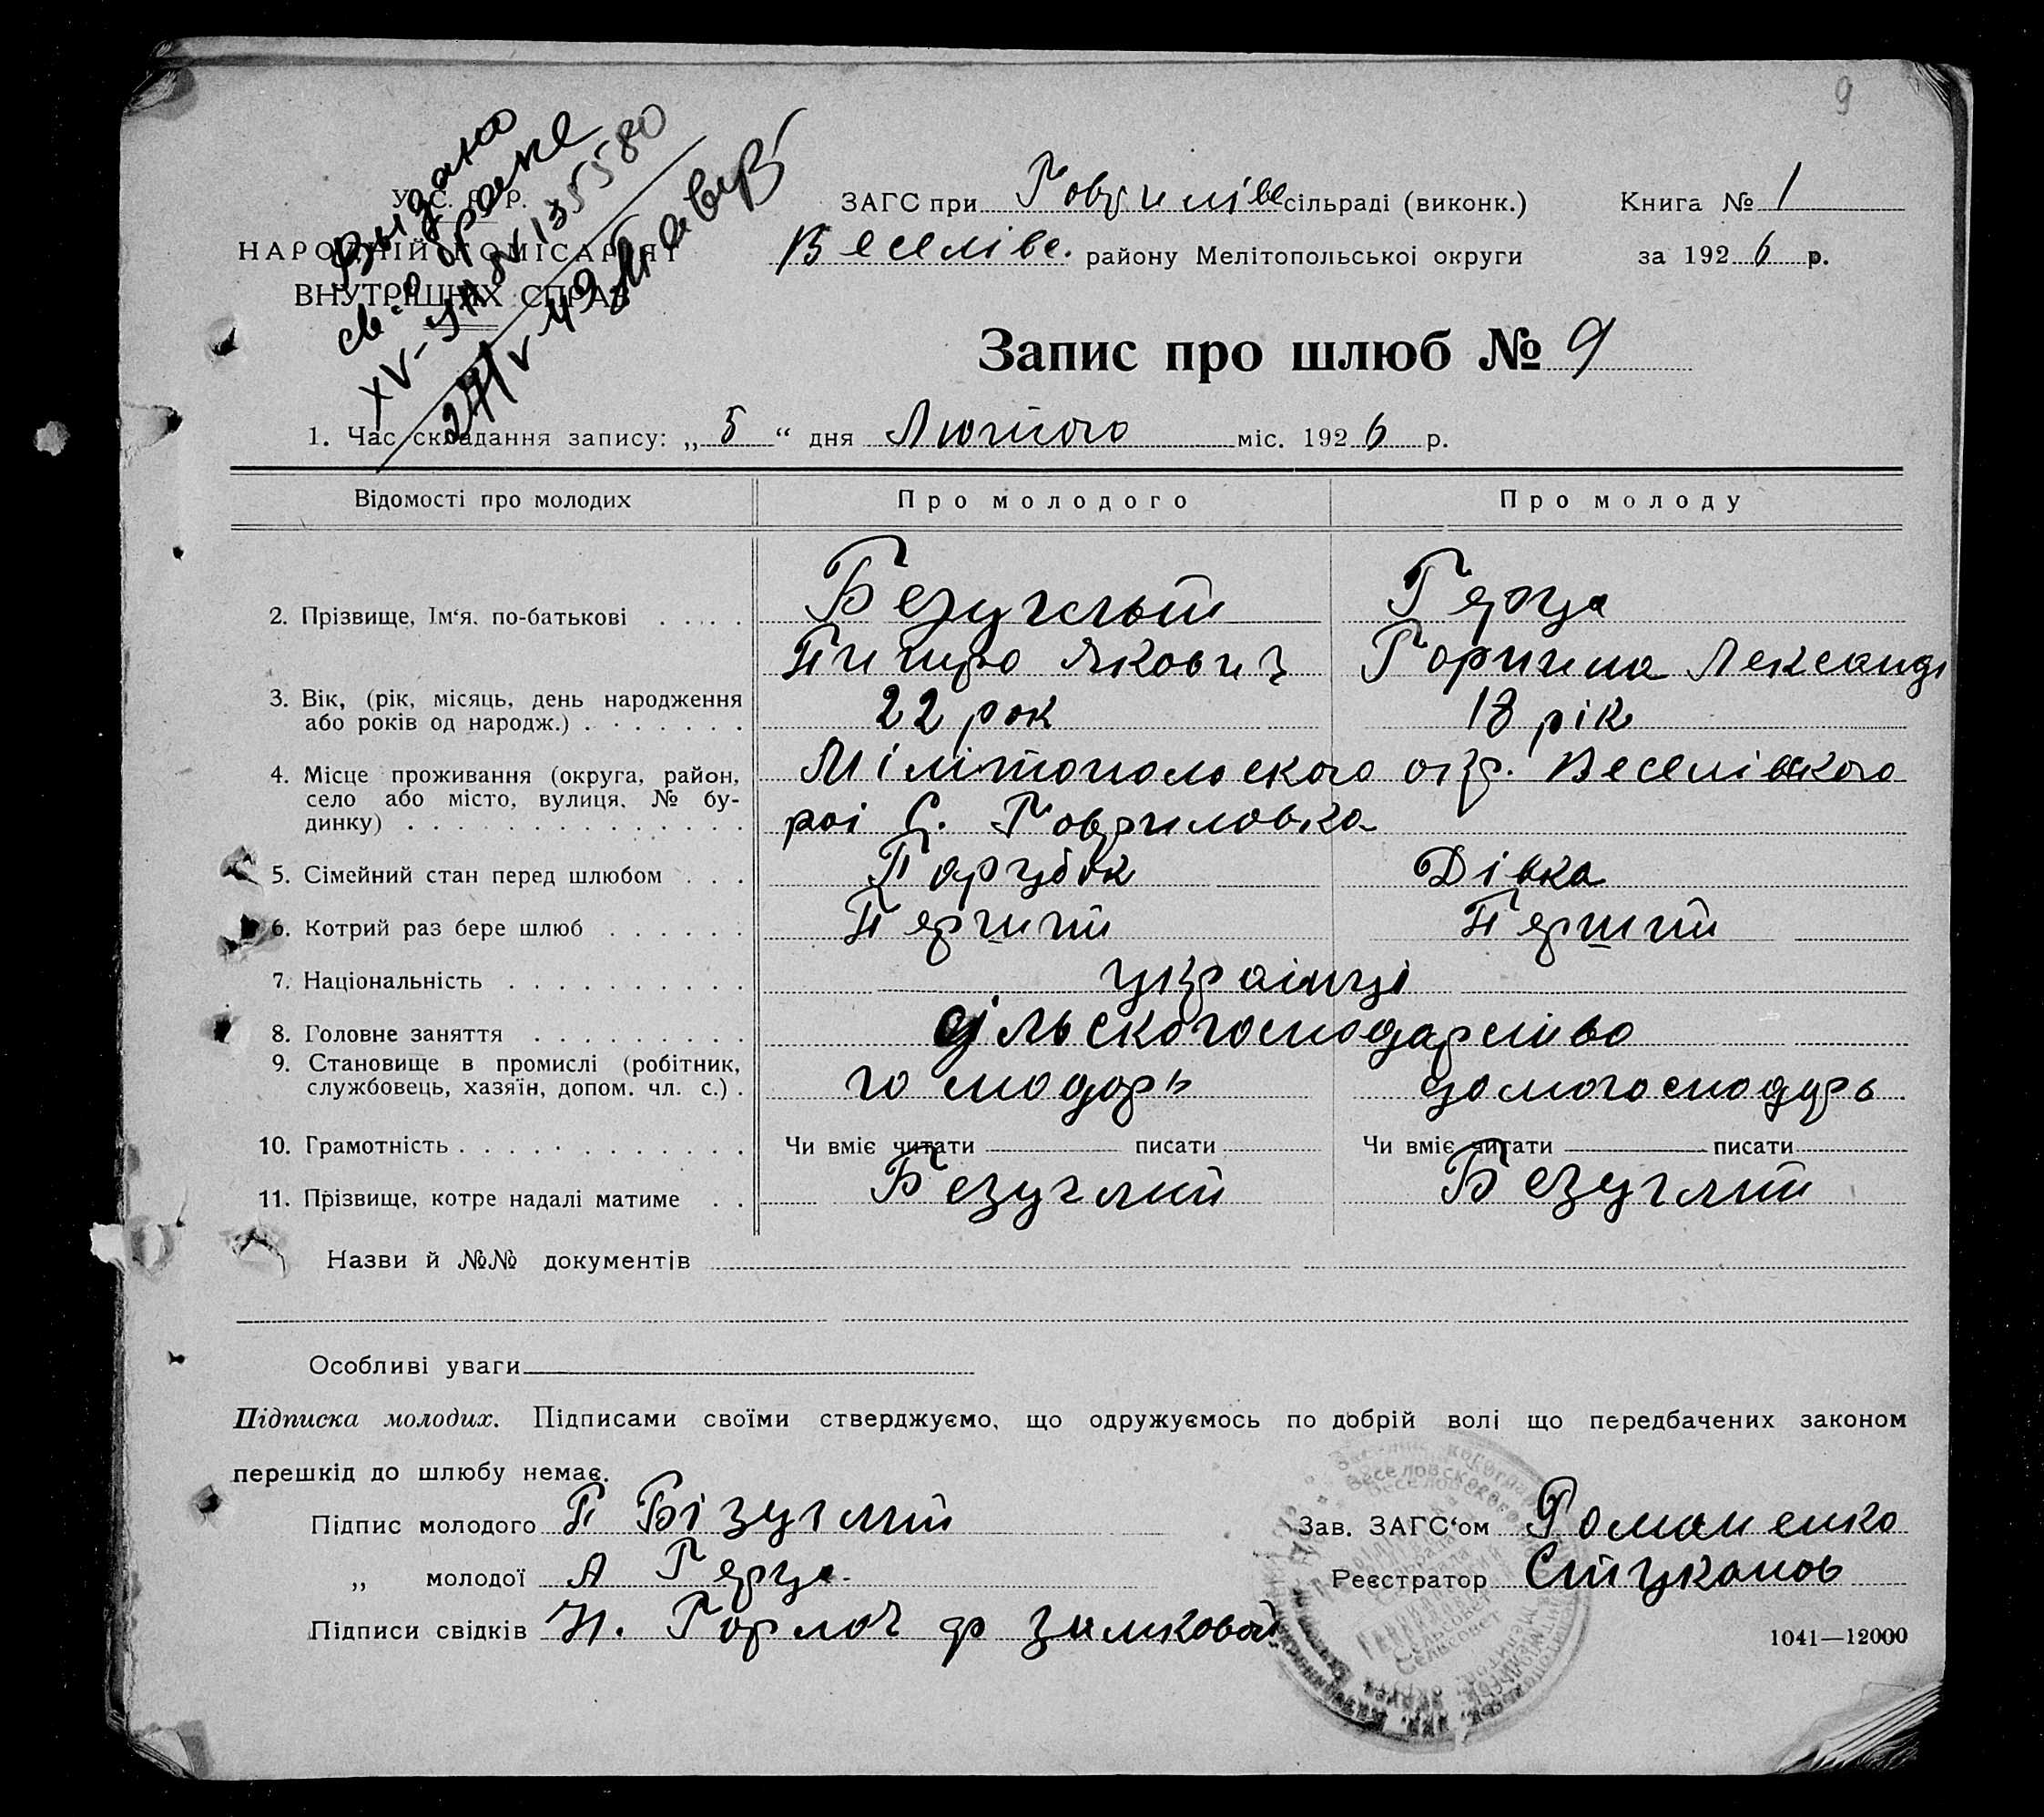 9
Выдано
св-о о браке
У. С. Р. Р.
НАРОДНІЙ КОМІСАРІЯТ
ВНУТРІШНІХ СПРАВ
ЗАГС при Говриліве сільраді (виконк.) Книга № 1
Веселівс. району Мелітопольської округи за 1926 р.
Запис про шлюб № 9
1. Час складання запису: „ 5 “ дня Лютого міс. 1926 р.
Відомості про молодих Про молодого Про молоду
2. Прізвище, Ім‘я. по-батькові Безуглый Герца
Питро Якович Горпина Лександ
3. Вік, (рік, місяць, день народження
або років од народж.) 22 рок 18 рік
4. Місце проживання (округа, район, Мілітопольского окр. Веселівского
село або місто, вулиця, № бу-
динку) раі С. Говриловка
5. Сімейний стан перед шлюбом Парубок Дівка
6. Котрий раз бере шлюб Перший Перший
7. Національність українці
8. Головне заняття сільскогосподарство
9. Становище в промислі (робітник,
службовець, хазяїн, допом. чл. с.) господорь домогосподарь
10. Грамотність Чи вміє читати писати Чи вміє читати писати
11. Прізвище, котре надалі матиме Безуглий Безуглий
Назви й №№ документів
Особливі уваги
Підписка молодих. Підписами своїми стверджуємо, що одружуємось по добрій волі що передбачених законом
перешкід до шлюбу немає.
Підпис молодого П Бізуглий Зав. ЗАГС‘ом Романенко
„ молодої А Герца Реєстратор Стуканов
Підписи свідків Н. Горлоч ф Зимковой
1041—12000